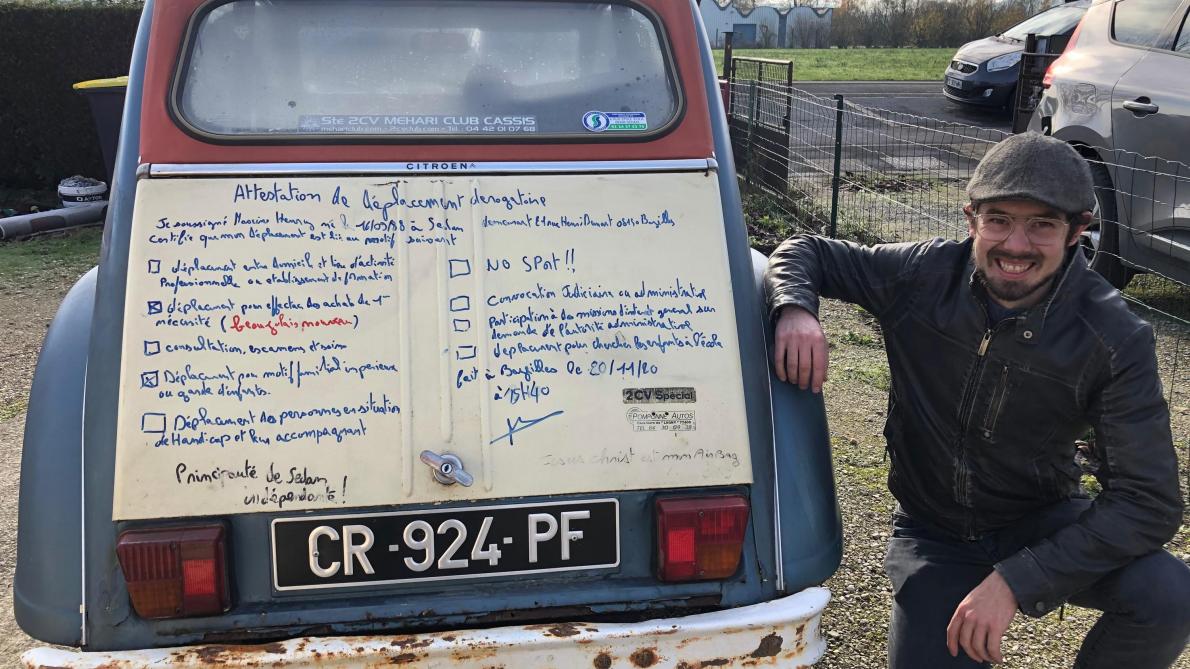 Ste 2CV MEHARI CLUB CASSIS
mehariclub.com - 2cvclub.com - Tél. 04 42 01 07 68
CITROËN
Attestation de déplacement dérogatoire
Je soussigné Henry né le 16/05/98 à Sedan
certifie que mon déplacement est lié au motif suivant
déplacement entre domicile et lieu d'activité
Professionnelle ou etablissement de formation
déplacement pour effectuer des achats de 1ère
nécésité (beaujolais nouveau)
consultation, examens et soins
Déplacement pour motif familial impérieux
ou garde d'enfants.
Déplacement des personnes en situation
de Handicap et leur accompagnant
Principauté de Sedan
indépendante !
demeurant rue Henri Dunant Bazeilles
NO SPORT !!
Convocation Judiciaire ou administrative
Participation à des missions d'intérêt général sur
demande de l'autorité administrative
déplacement pour chercher les enfants à l'école
fait à Bazeilles le 20/11/20
à 15H40
2CV Spécial
POMPONNE AUTOS
Jesus christ est mon AirBag
CR-924-PF